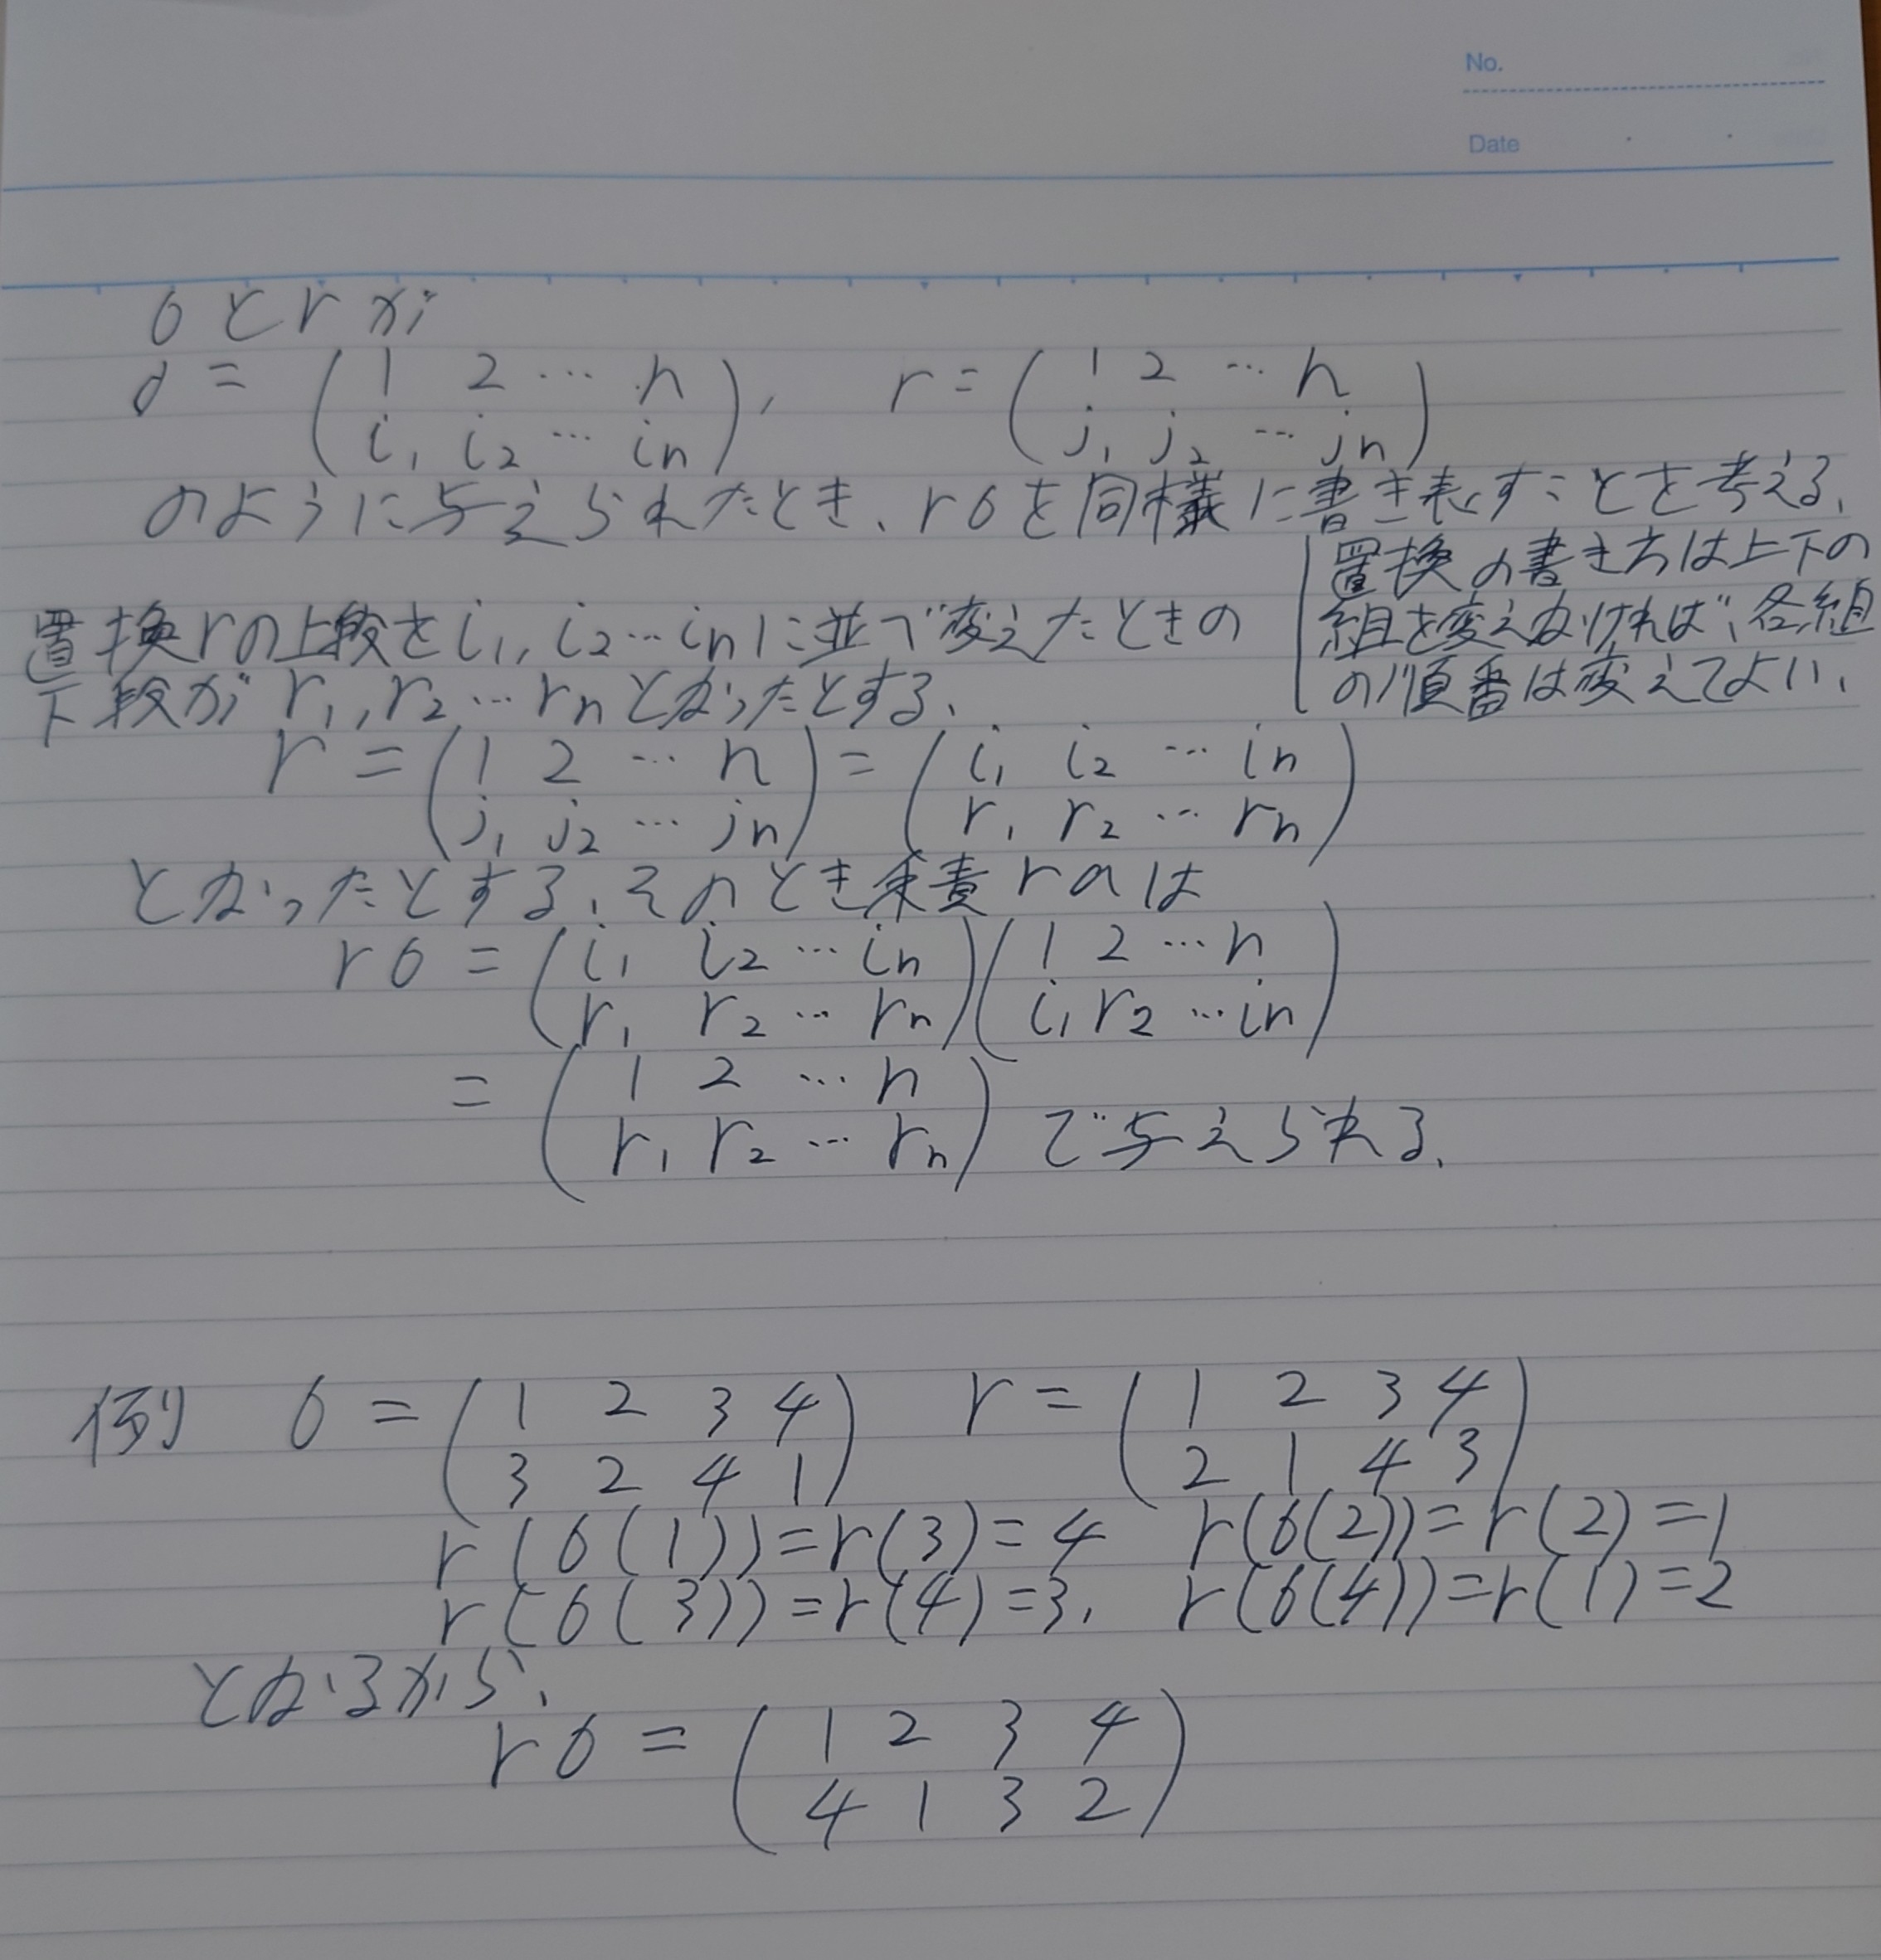 No.
Date
σとrが
σ = (1 2 … n / i₁ i₂ … in), r = (1 2 … n / j₁ j₂ … jn)
のように与えられたとき、rσを同様に書き表すことを考える、
置換の書き方は上下の
組を変えなければ、各組
の順番は変えてよい、
置換rの上段をi₁, i₂…inに並べ変えたときの
下段がr₁, r₂…rnとなったとする、
r = (1 2 … n / j₁ j₂ … jn) = (i₁ i₂ … in / r₁ r₂ … rn)
となったとする、そのとき乗責rσは
rσ = (i₁ i₂ … in / r₁ r₂ … rn)(1 2 … n / i₁ r₂ … in)
= (1 2 … n / r₁ r₂ … rn) で与えられる、
例 σ = (1 2 3 4 / 3 2 4 1) r = (1 2 3 4 / 2 1 4 3)
r(σ(1)) = r(3) = 4 r(σ(2)) = r(2) = 1
r(σ(3)) = r(4) = 3, r(σ(4)) = r(1) = 2
となるから、
rσ = (1 2 3 4 / 4 1 3 2)